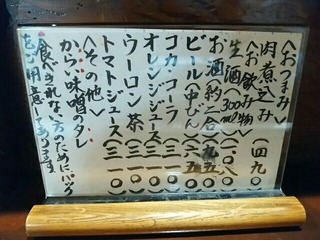 〈おつまみ〉
肉煮込み(四九〇)
〈お飲み物〉
生酒(300ml)(一〇八〇)
お酒約一合(九五〇)
ビール(中びん)
コカ・コーラ(三一〇)
オレンジジュース(三一〇)
ウーロン茶(三一〇)
トマトジュース(三一〇)
〈その他〉
からい味噌のタレ
食べきれない方のためにパック
もご用意してあります。